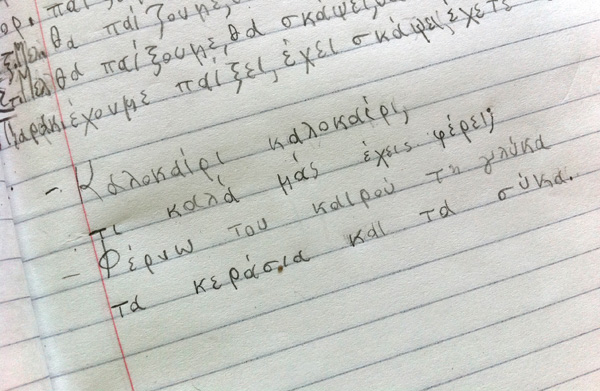 ορ. παίζουμε
Στ.Μελ. θα παίζουμε, θα σκάψει,
Στ.Μελ θα παίζουμε, θα σκάψει,
Παρακ. έχουμε παίξει, έχει σκάψει, έχετε
- Καλοκαίρι καλοκαίρι,
τι καλά μάς έχεις φέρει;
- Φέρνω του καιρού τη γλύκα
τα κεράσια και τα σύκα.